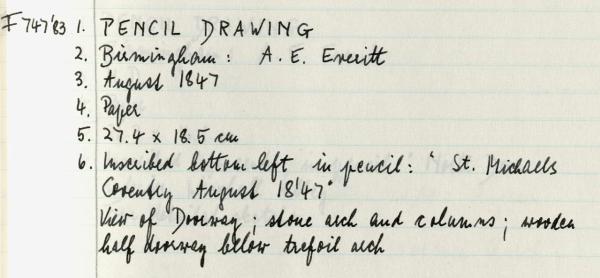 F747'83 1. PENCIL DRAWING
2. Birmingham: A. E. Everitt
3. August 1847
4. Paper
5. 27.4 x 18.5 cm
6. Inscribed bottom left in pencil: "St. Michaels
Coventry August 18'47"
View of Doorway; stone arch and columns; wooden
half doorway below trefoil arch